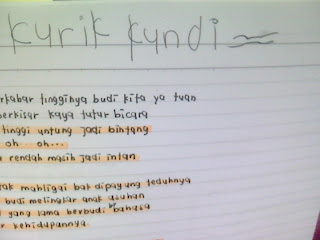 Kurik Kundi
rkabar tingginya budi kita ya tuan
berkisar kaya tutur bicara
tinggi untung jadi bintang
oh.. oh...
rendah masih jadi intan
tak mahligai bak dipayung teduhnya
budi melingkar anak asuhan
yang lama berbudi bahasa
r kehidupannya